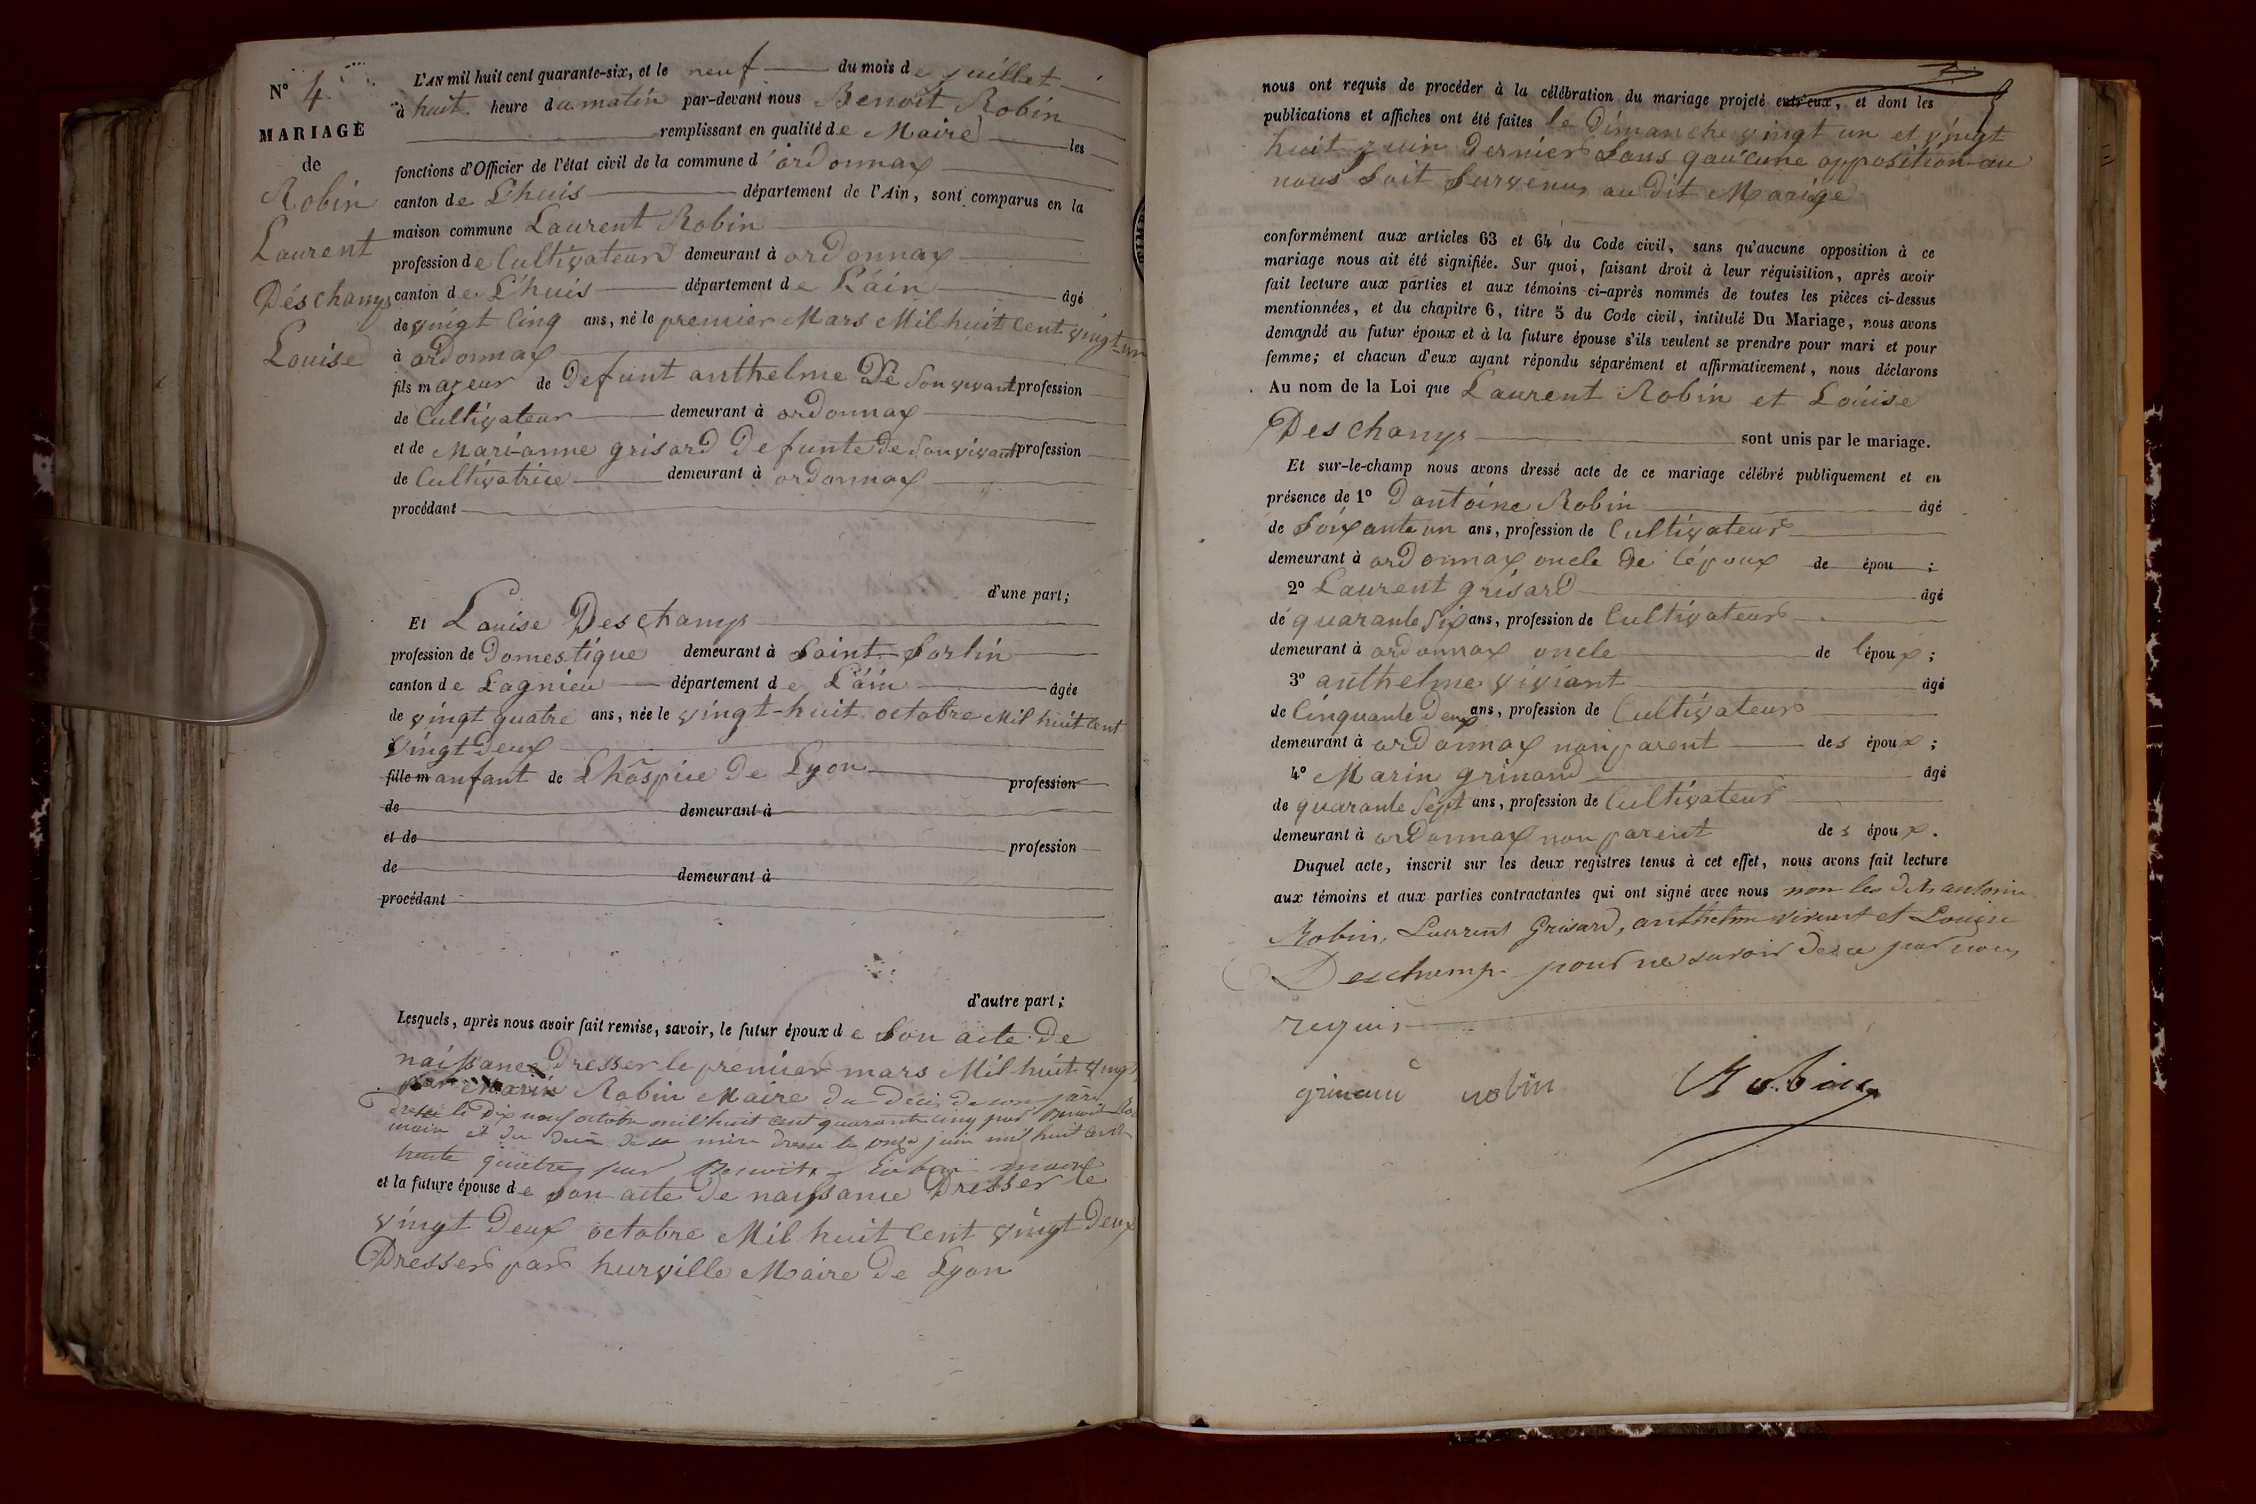 N° 4
MARIAGE
de
Robin
Laurent
Déschamps
Louise
L'AN mil huit cent quarante-six, et le neuf du mois de juillet
à huit heure du matin par-devant nous Benoit Robin
remplissant en qualité de Maire les
fonctions d'Officier de l'état civil de la commune d'ordonnax
canton de Lhuis département de l'Ain, sont comparus en la
maison commune Laurent Robin
profession de Cultivateur demeurant à ordonnax
canton de Lhuis département de L'áin âgé
de vingt Cinq ans, né le premier Mars Mil huit Cent vingt un
à ordonnax
fils majeur de Defunt anthelme De Son vivant profession
de Cultivateur demeurant à ordonnax
et de Mari-anne grisard Defunte De Son vivant profession
de Cultivatrice demeurant à ordonnax
procédant
d'une part;
Et Louise Deschamps
profession de Domestique demeurant à Saint Sorlin
canton de Lagnieu département de L'áin âgée
de vingt quatre ans, née le vingt-huit octobre Mil huit Cent
vingt Deux
fille m anfant de Lhôspice De Lyon profession
de demeurant à
et de profession
de demeurant à
procédant
d'autre part;
Lesquels, après nous avoir fait remise, savoir, le futur époux de Son acte De
naissance Dresser le premier mars Mil huit vingt
par Marin Robin Maire du Décès de son père
dressé le Dix neuf octobre mil huit cent quarante cinq par Benoit
maire et du décès de sa mère dressé le onze juin mil huit cent
trente quatre par Benoit Robin maire
et la future épouse de Son acte De naissance Dresser le
vingt Deux octobre Mil huit Cent vingt Deux
Dresser par hurville Maire De Lyon
nous ont requis de procéder à la célébration du mariage projeté entr'eux, et dont les
publications et affiches ont été faites le Dimanche vingt un et vingt
huit juin Dernier Sans qau'cune opposition au
nous Soit Survenus au Dit Marige
conformément aux articles 63 et 64 du Code civil, sans qu'aucune opposition à ce
mariage nous ait été signifiée. Sur quoi, faisant droit à leur réquisition, après avoir
fait lecture aux parties et aux témoins ci-après nommés de toutes les pièces ci-dessus
mentionnées, et du chapitre 6, titre 5 du Code civil, intitulé Du Mariage, nous avons
demandé au futur époux et à la future épouse s'ils veulent se prendre pour mari et pour
femme; et chacun d'eux ayant répondu séparément et affirmativement, nous déclarons
Au nom de la Loi que Laurent Robin et Louise
Deschamps sont unis par le mariage.
Et sur-le-champ nous avons dressé acte de ce mariage célébré publiquement et en
présence de 1° D'antoine Robin âgé
de Soixante un ans, profession de Cultivateur
demeurant à ordonnax oncle De l'époux de épou ;
2° Laurent grisard âgé
de quarante Six ans, profession de Cultivateur
demeurant à ordonnax oncle de l'époux ;
3° anthelme viviant âgé
de Cinquante Deux ans, profession de Cultivateur
demeurant à ordonnax non parent des époux ;
4° Marin grinand âgé
de quarante Sept ans, profession de Cultivateur
demeurant à ordonnax non parent des époux.
Duquel acte, inscrit sur les deux registres tenus à cet effet, nous avons fait lecture
aux témoins et aux parties contractantes qui ont signé avec nous non les dits antoine
Robin, Laurent Grisard, anthelme viviant et Louise
Deschamp pour ne savoir de ce par nous
requis
grinand robin Robin